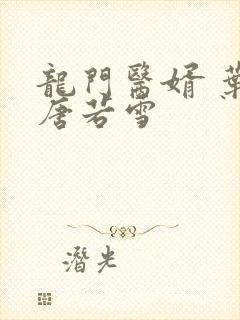 龍門醫婿 葉
唐若雪
潛光